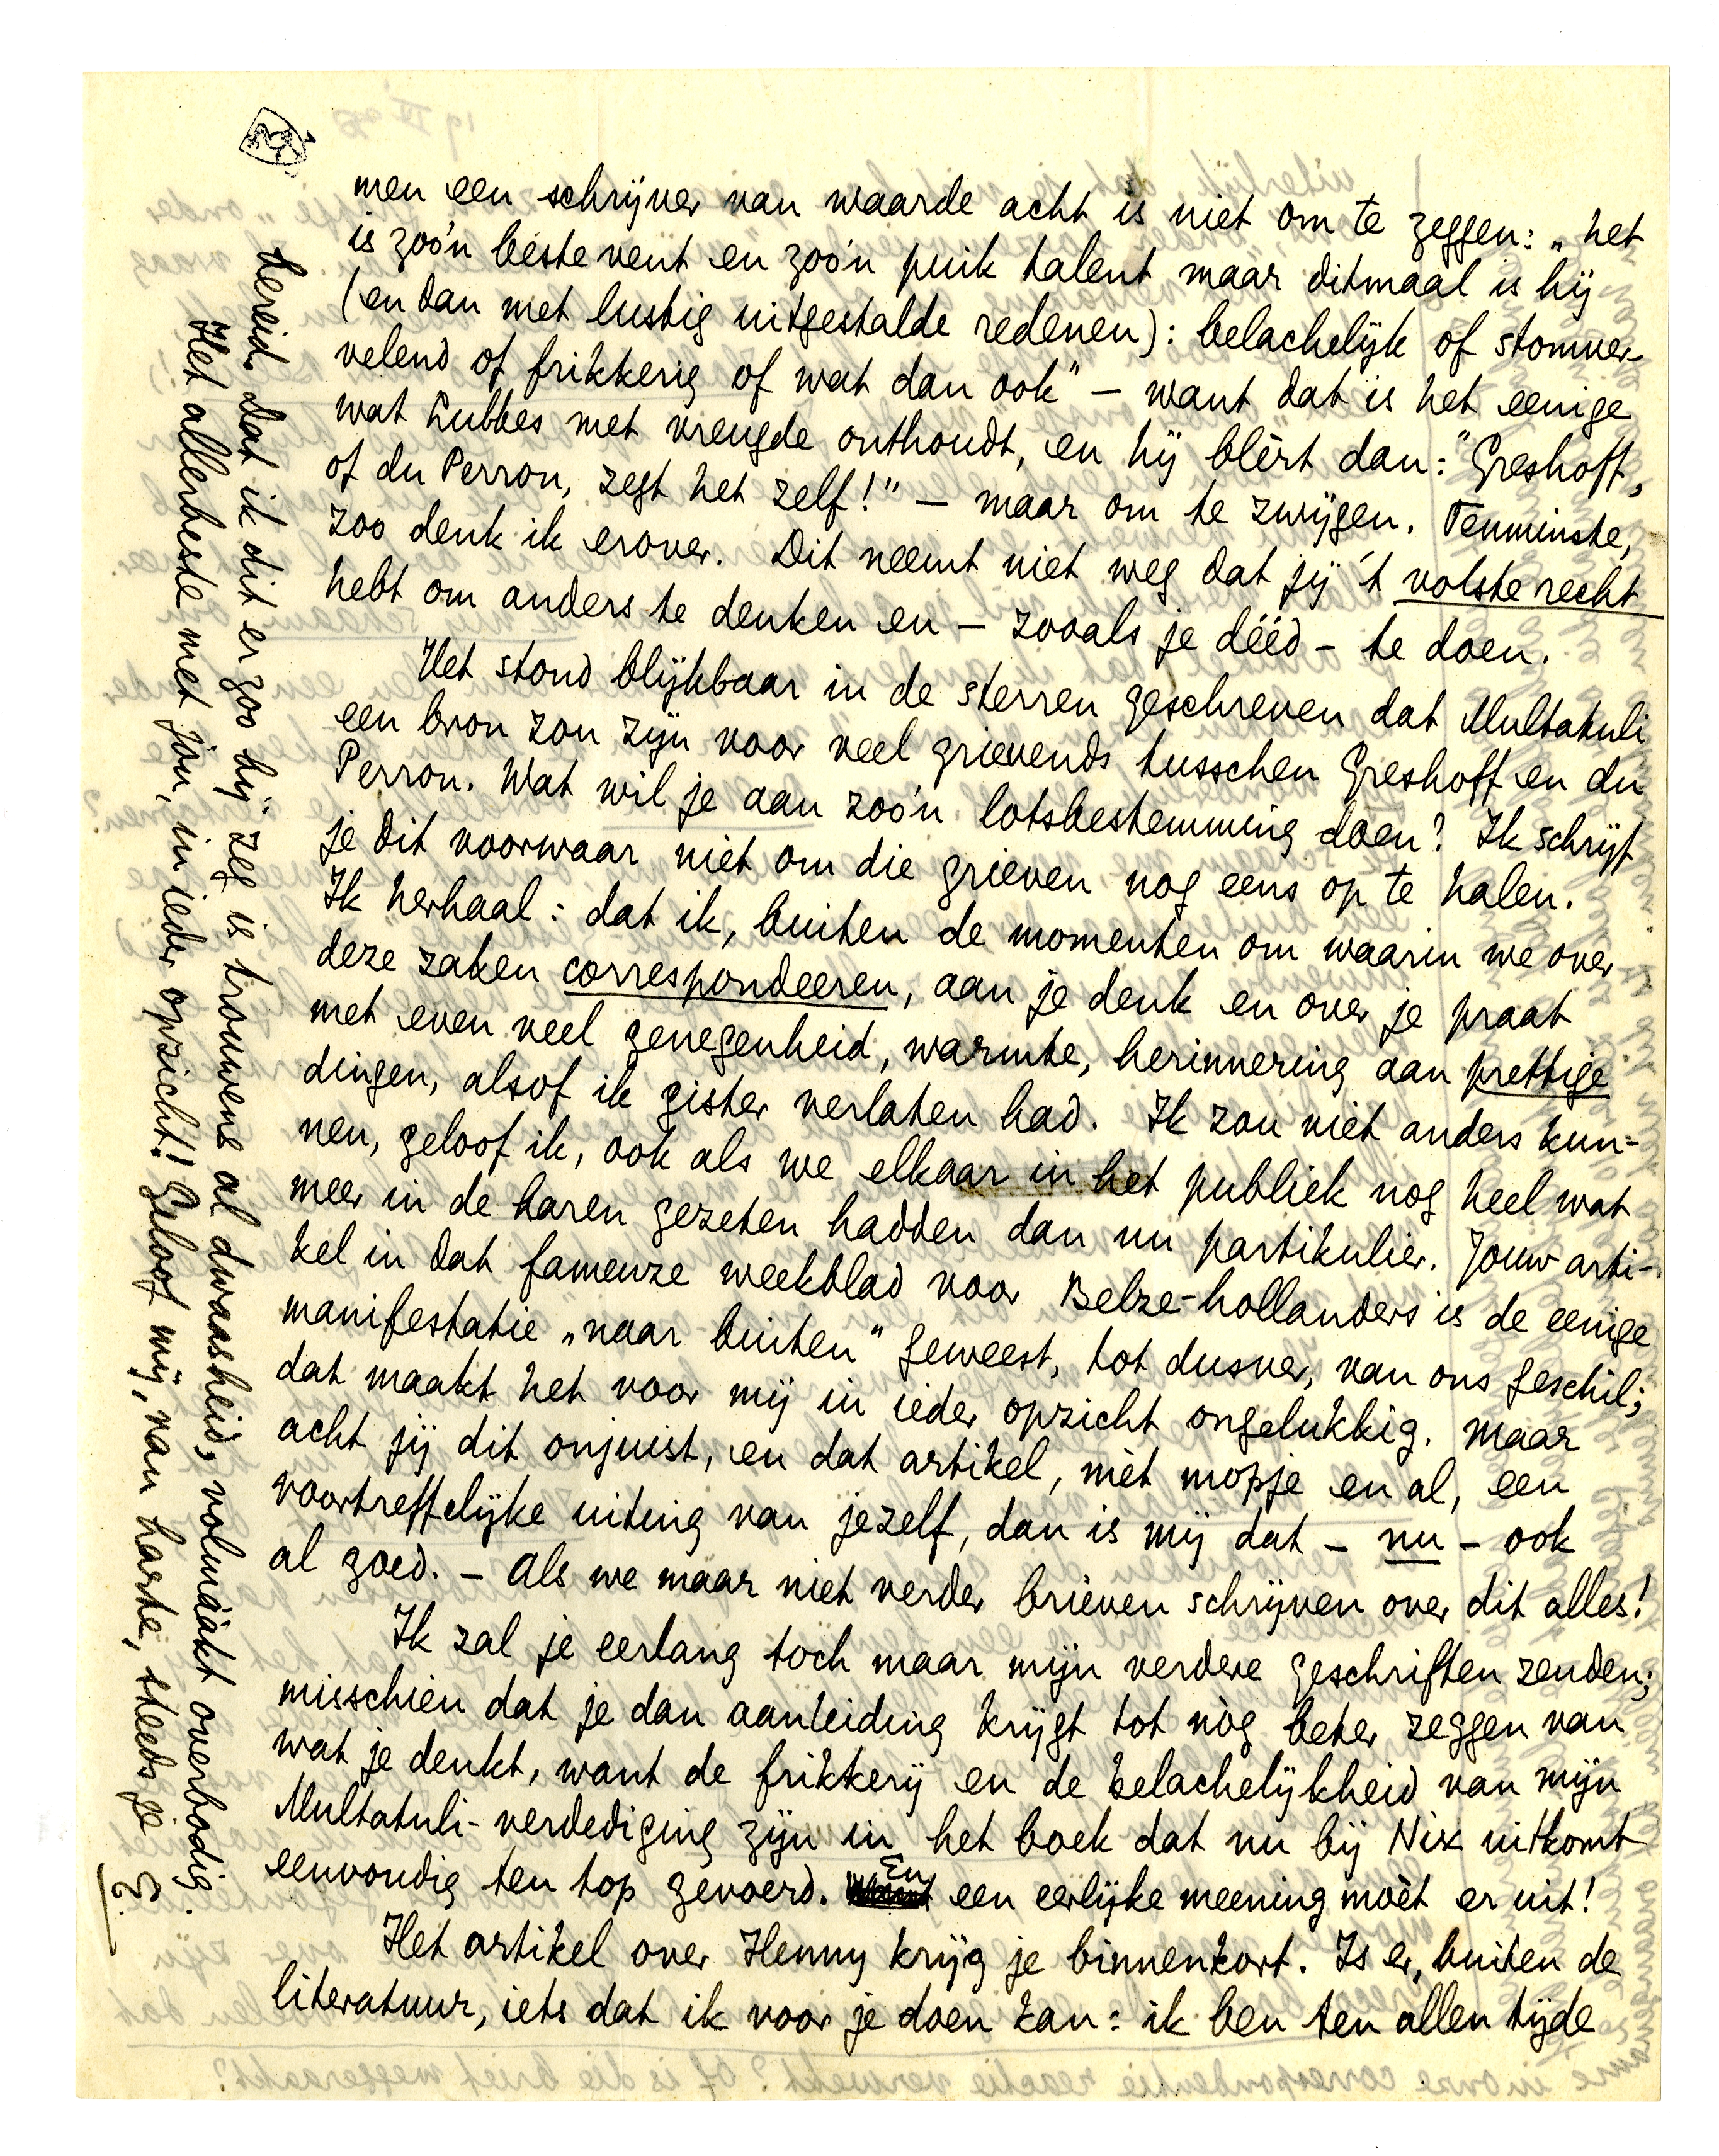 men een schrijver van waarde acht is niet om te zeggen: „het
is zoo'n beste vent en zoo'n puik talent maar ditmaal is hij
(en dan met lustig uitgestalde redenen): belachelijk of stomver-
velend of frikkerig of wat dan ook" — want dat is het eenige
wat Lubbes met vreugde onthoudt, en hij blèrt dan: "Greshoff,
of du Perron, zegt het zelf!" — maar om te zwijgen. Tenminste,
zoo denk ik erover. Dit neemt niet weg dat jij 't volste recht
hebt om anders te denken en — zooals je dééd — te doen.
Het stond blijkbaar in de sterren geschreven dat Multatuli
een bron zou zijn voor veel grievends tusschen Greshoff en du
Perron. Wat wil je aan zoo'n lotsbestemming doen? Ik schrijf
je dit voorwaar niet om die grieven nog eens op te halen.
Ik herhaal: dat ik, buiten de momenten om waarin we over
deze zaken correspondeeren, aan je denk en over je praat
met even veel genegenheid, warmte, herinnering aan prettige
dingen, alsof ik gister verlaten had. Ik zou niet anders kun-
nen, geloof ik, ook als we elkaar in het publiek nog heel wat
meer in de haren gezeten hadden dan nu partikulier. Jouw arti-
kel in dat fameuze weekblad voor Belze-hollanders is de eenige
manifestatie „naar buiten" geweest, tot dusver, van ons geschil;
dat maakt het voor mij in ieder opzicht ongelukkig. Maar
acht jij dit onjuist, en dat artikel, mèt mopje en al, een
voortreffelijke uiting van jezelf, dan is mij dat — nu — ook
al goed. — Als we maar niet verder brieven schrijven over dit alles!
Ik zal je eerlang toch maar mijn verdere geschriften zenden;
misschien dat je dan aanleiding krijgt tot nòg beter zeggen van
wat je denkt, want de frikkerij en de belachelijkheid van mijn
Multatuli-verdediging zijn in het boek dat nu bij Nix uitkomt
eenvoudig ten top gevoerd. En een eerlijke meening moèt er uit!
Het artikel over Henny krijg je binnenkort. Is er, buiten de
literatuur, iets dat ik voor je doen kan: ik ben ten allen tijde
bereid. Dat ik dit er zoo bij zeg is trouwens al dwaasheid, volmaakt overbodig.
Het allerbeste met jou, in ieder opzicht! Geloof mij, van harte, steeds je
E.